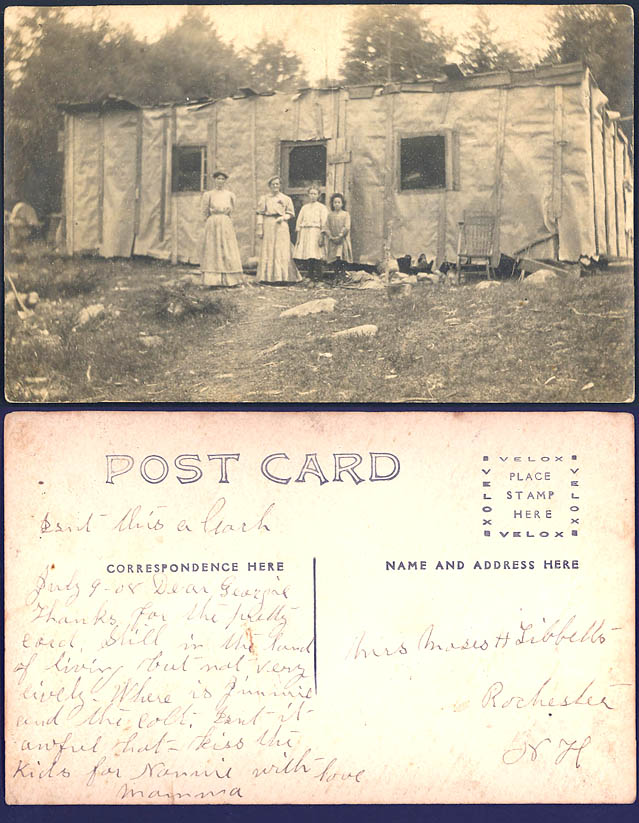 POST CARD
VELOX
VELOX
PLACE
STAMP
HERE
VELOX
VELOX
Isnt this a
CORRESPONDENCE HERE
NAME AND ADDRESS HERE
July 9-08 Dear Georgie
Thanks for the pretty
card. Still in the land
of livin, but not very
lively. Where is Jimmie
and the colt. Isnt it
awful hot - kiss the
kids for Nannie with love
Mamma
Mrs Moses H Tibbetts
Rochester
N H